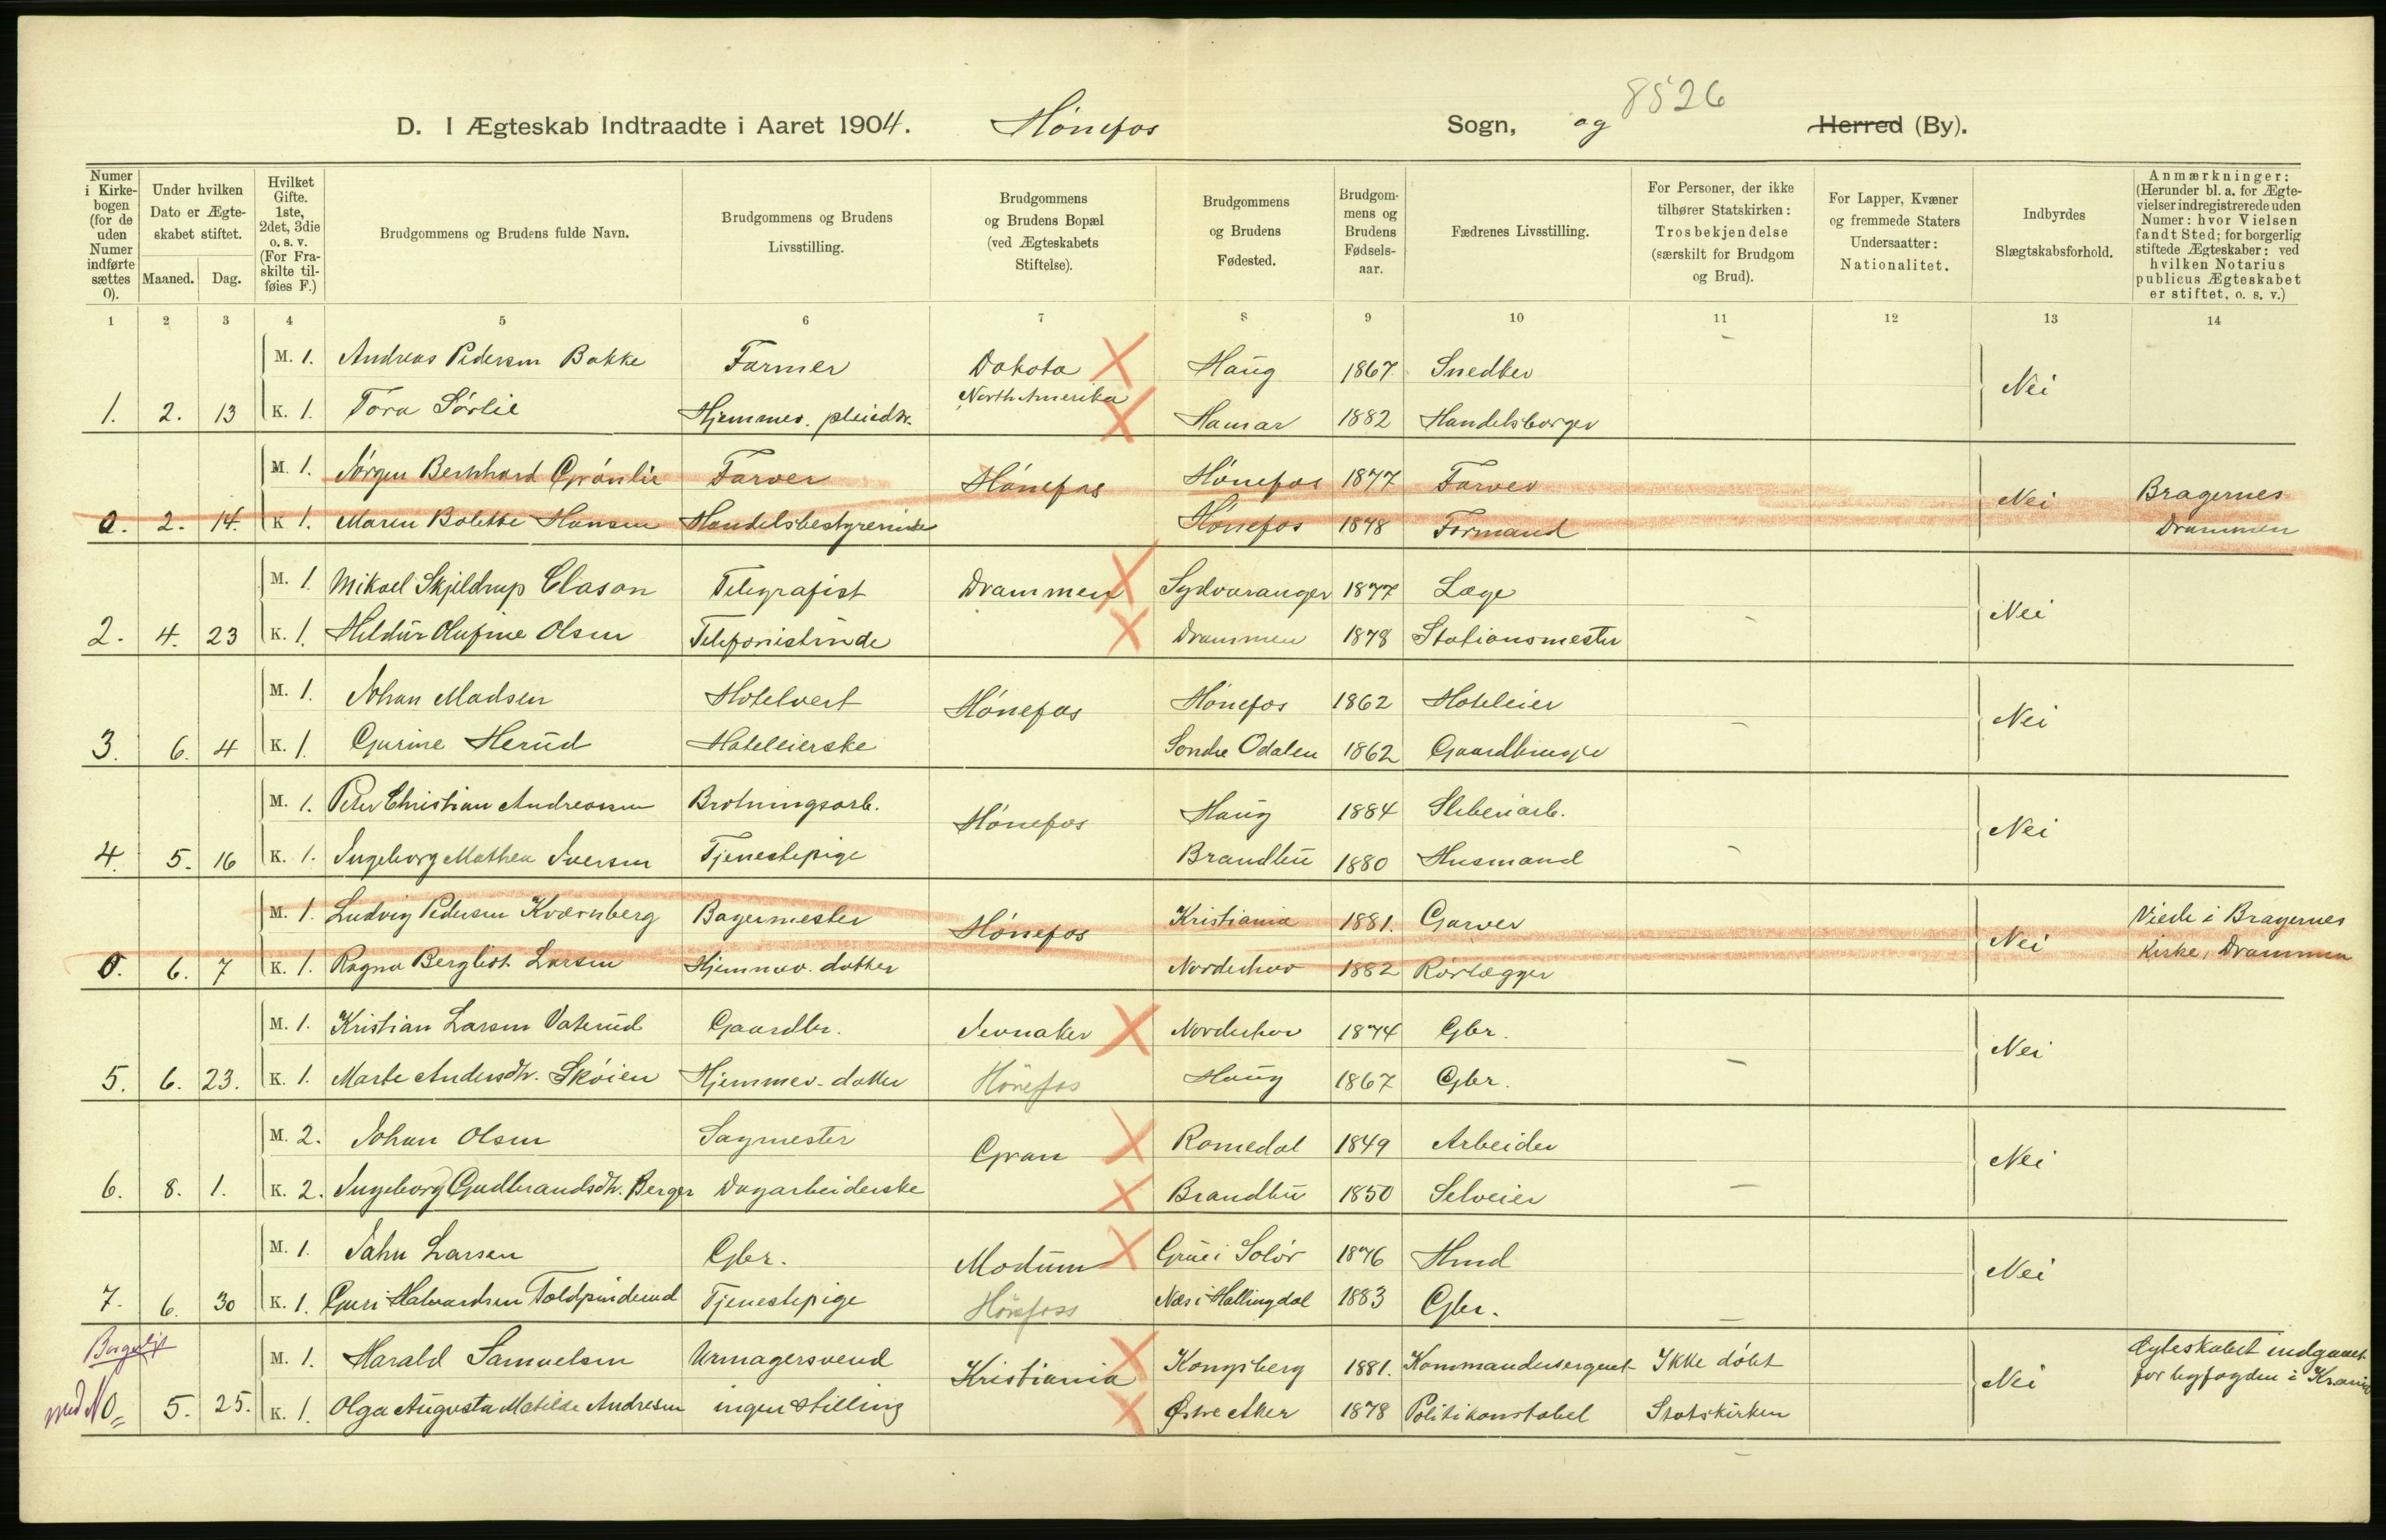 8526
D. I Ægteskab Indtraadte i Aaret 1904. Hønefos Sogn, og Herred (By).
Numer i Kirkebogen (for de uden Numer indførte sættes 0).
Under hvilken Dato er Ægteskabet stiftet.
Maaned. Dag.
Hvilket Gifte. 1ste, 2det, 3die o. s. v. (For Fraskilte tilføies F.)
Brudgommens og Brudens fulde Navn.
Brudgommens og Brudens Livsstilling.
Brudgommens og Brudens Bopæl (ved Ægteskabets Stiftelse).
Brudgommens og Brudens Fødested.
Brudgommens og Brudens Fødselsaar.
Fædrenes Livsstilling.
For Personer, der ikke tilhører Statskirken: Trosbekjendelse (særskilt for Brudgom og Brud).
For Lapper, Kvæner og fremmede Staters Undersaatter: Nationalitet.
Indbyrdes Slægtskabsforhold.
Anmærkninger: (Herunder bl. a. for Ægtevielser indregistrerede uden Numer: hvor Vielsen fandt Sted; for borgerlig stiftede Ægteskaber: ved hvilken Notarius publicus Ægteskabet er stiftet, o. s. v.)
1 2 3 4 5 6 7 8 9 10 11 12 13 14
M. 1. Andreas Pedersen Bakke Farmer Dakota Haug 1867 Snedker
North Amerika Nei
1. 2. 13 K. 1. Tora Sørlie Hjemmev. pleiedtr. Hamar 1882 Handelsborger
M. 1. Jørgen Bernhard Grønlie Farver Hønefos Hønefos 1877 Farver Nei Bragernes
0. 2. 14. K 1. Maren Bolette Hansen Handelsbestyrerinde Hønefos 1878 Formand Drammen
M. 1. Mikael Skjeldrup Clason Telegrafist Drammen Sydvaranger 1877 Læge Nei
2. 4. 23 K. 1. Hildur Olufine Olsen Telefonistinde Drammen 1878 Stationsmester
M. 1. Johan Madsen Hotelvert Hønefos Hønefos 1862 Hoteleier Nei
3. 6. 4 K. 1. Gurine Herud Hotelleierske Søndre Odalen 1862 Gaardbruger
M. 1. Peter Christian Andreassen Brotningsarb. Hønefos Haug 1884 Sliberiarb. Nei
4. 5. 16 K. 1. Ingeborg Mathea Iversen Tjenestepige Brandbu 1880 Husmand
M. 1. Ludvig Pedersen Kværnberg Bagermester Hønefos Kristiania 1881. Garver Nei Viede i Bragernes
0. 6. 7 K. 1. Ragna Bergliot Larsen Hjemmev. datter Norderhov 1882 Rørlægger Kirke, Drammen
M. 1. Kristian Larsen Vaterud Gaardbr. Jevnaker Norderhov 1874 Gbr. Nei
5. 6. 23. K. 1. Marte Andersdtr. Skøien Hjemmev. datter Hønefos Haug 1867 Gbr.
M. 2. Johan Olsen Sagmester Gran Romedal 1849 Arbeider Nei
6. 8. 1. K. 2. Ingeborg Gudbrandsdtr. Berger Dagarbeiderske Brandbu 1850 Selveier
M. 1. John Larsen Gbr. Modum Grue i Solør 1876 Hmd Nei
7. 6. 30 K. 1. Guri Halvardsen Toldpinderud Tjenestepige Hønefoss Næs i Hallingdal 1883 Gbr.
Borgerligt M. 1. Harald Samuelsen Urmagersvend Kristiania Kongsberg 1881. Kommandersergeant Ikke døbt Nei Ægteskabet indgaaet
med No 5. 25. K. 1. Olga Augusta Matilde Andresen ingen stilling Østre Aker 1878 Politikonstabel Statskirken for byfogden i Krania